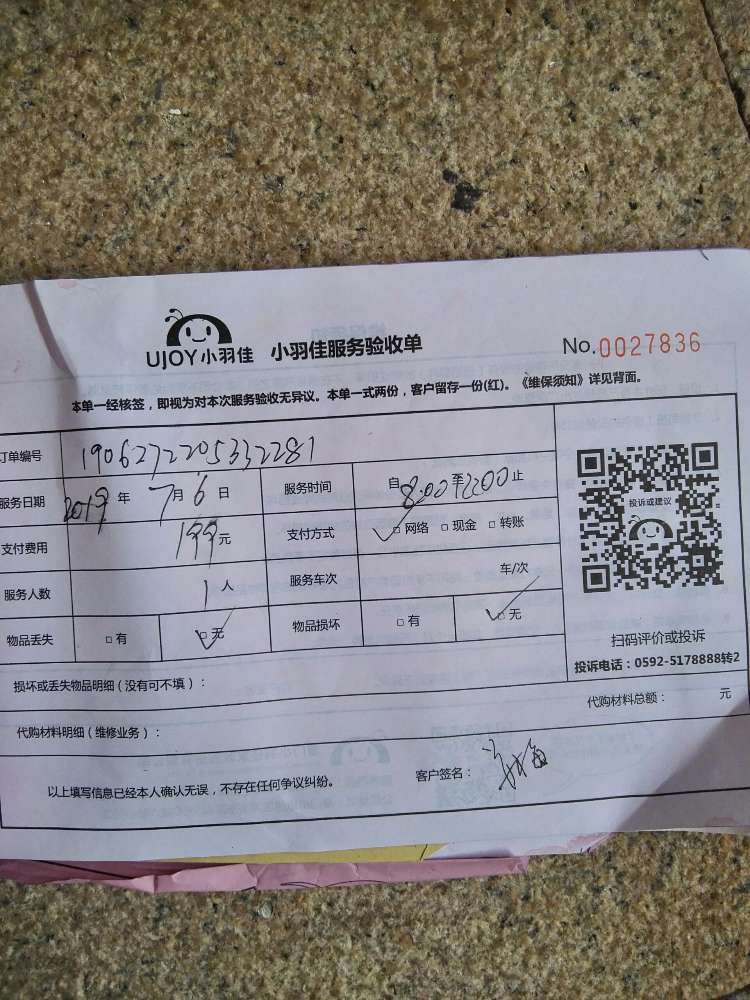 UJOY小羽佳 小羽佳服务验收单 No.0027836
本单一经核签，即视为对本次服务验收无异议。本单一式两份，客户留存一份(红)。《维保须知》详见背面。
订单编号 1906272205332281
服务日期 2019年7月6日 服务时间 自8:00至12:00止
支付费用 199元 支付方式 □网络 □现金 □转账
服务人数 1人 服务车次 车/次
物品丢失 □有 □无 物品损坏 □有 □无
投诉或建议
扫码评价或投诉
投诉电话：0592-5178888转2
损坏或丢失物品明细（没有可不填）：
代购材料总额： 元
代购材料明细（维修业务）：
以上填写信息已经本人确认无误，不存在任何争议纠纷。 客户签名：